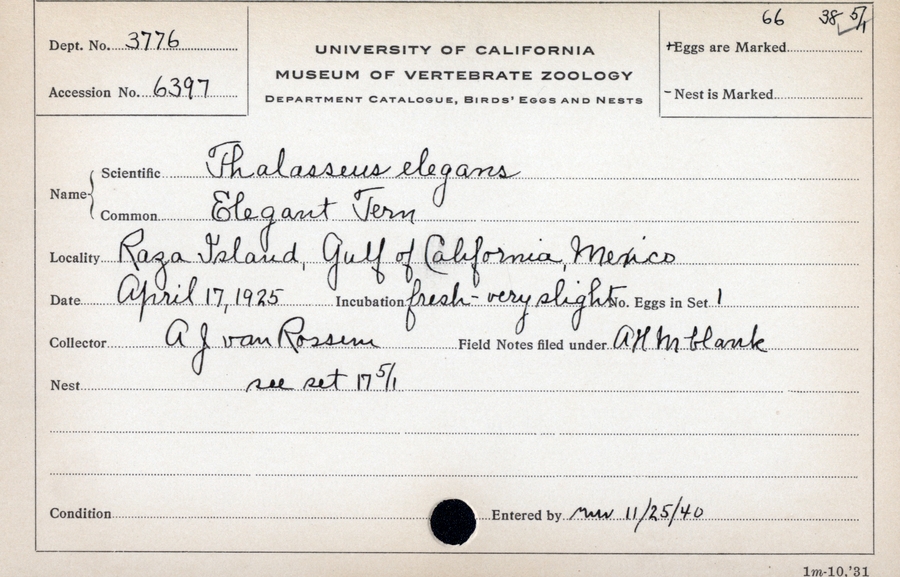 Dept. No. 3776
Accession No. 6397
UNIVERSITY OF CALIFORNIA
MUSEUM OF VERTEBRATE ZOOLOGY
DEPARTMENT CATALOGUE, BIRDS' EGGS AND NESTS
66 38 5/1
+Eggs are Marked
-Nest is Marked
Name
Scientific Thalasseus elegans
Common Elegant Tern
Locality Raza Island, Gulf of California, Mexico
Date April 17, 1925 Incubation fresh - very slight No. Eggs in Set 1
Collector A J van Rossem Field Notes filed under AHM blank
Nest see set 17 5/1
Condition Entered by 11/25/40
1m-10,'31